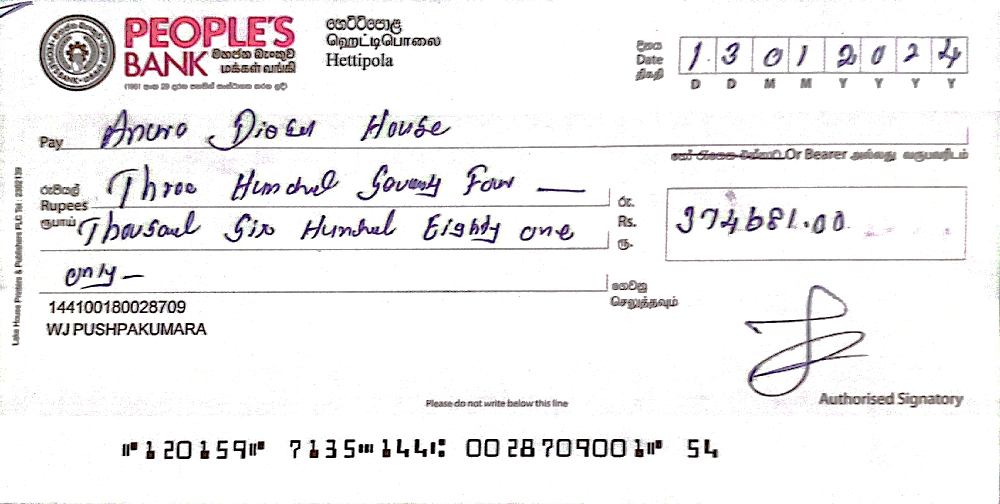 PEOPLE'S BANK
මහජන බැංකුව
மக்கள் வங்கி
හෙට්ටිපොළ
ஹெட்டிபொலை
Hettipola
දිනය
Date
திகதி
1 3 0 1 2 0 2 4
D D M M Y Y Y Y
Pay Anura Diesel House
Or Bearer அல்லது வருபவரிடம்
රුපියල්
Rupees
ரூபாய்
Three Hundred Seventy Four —
Thousand Six Hundred Eighty one
only —
රු.
Rs.
ரூ.
374681.00
ගෙවනු
செலுத்தவும்
144100180028709
WJ PUSHPAKUMARA
Authorised Signatory
Please do not write below this line
⑈120159⑈ 7135⑉144⑆ 0028709001⑈ 54
Lake House Printers & Publishers PLC Tel : 2392139